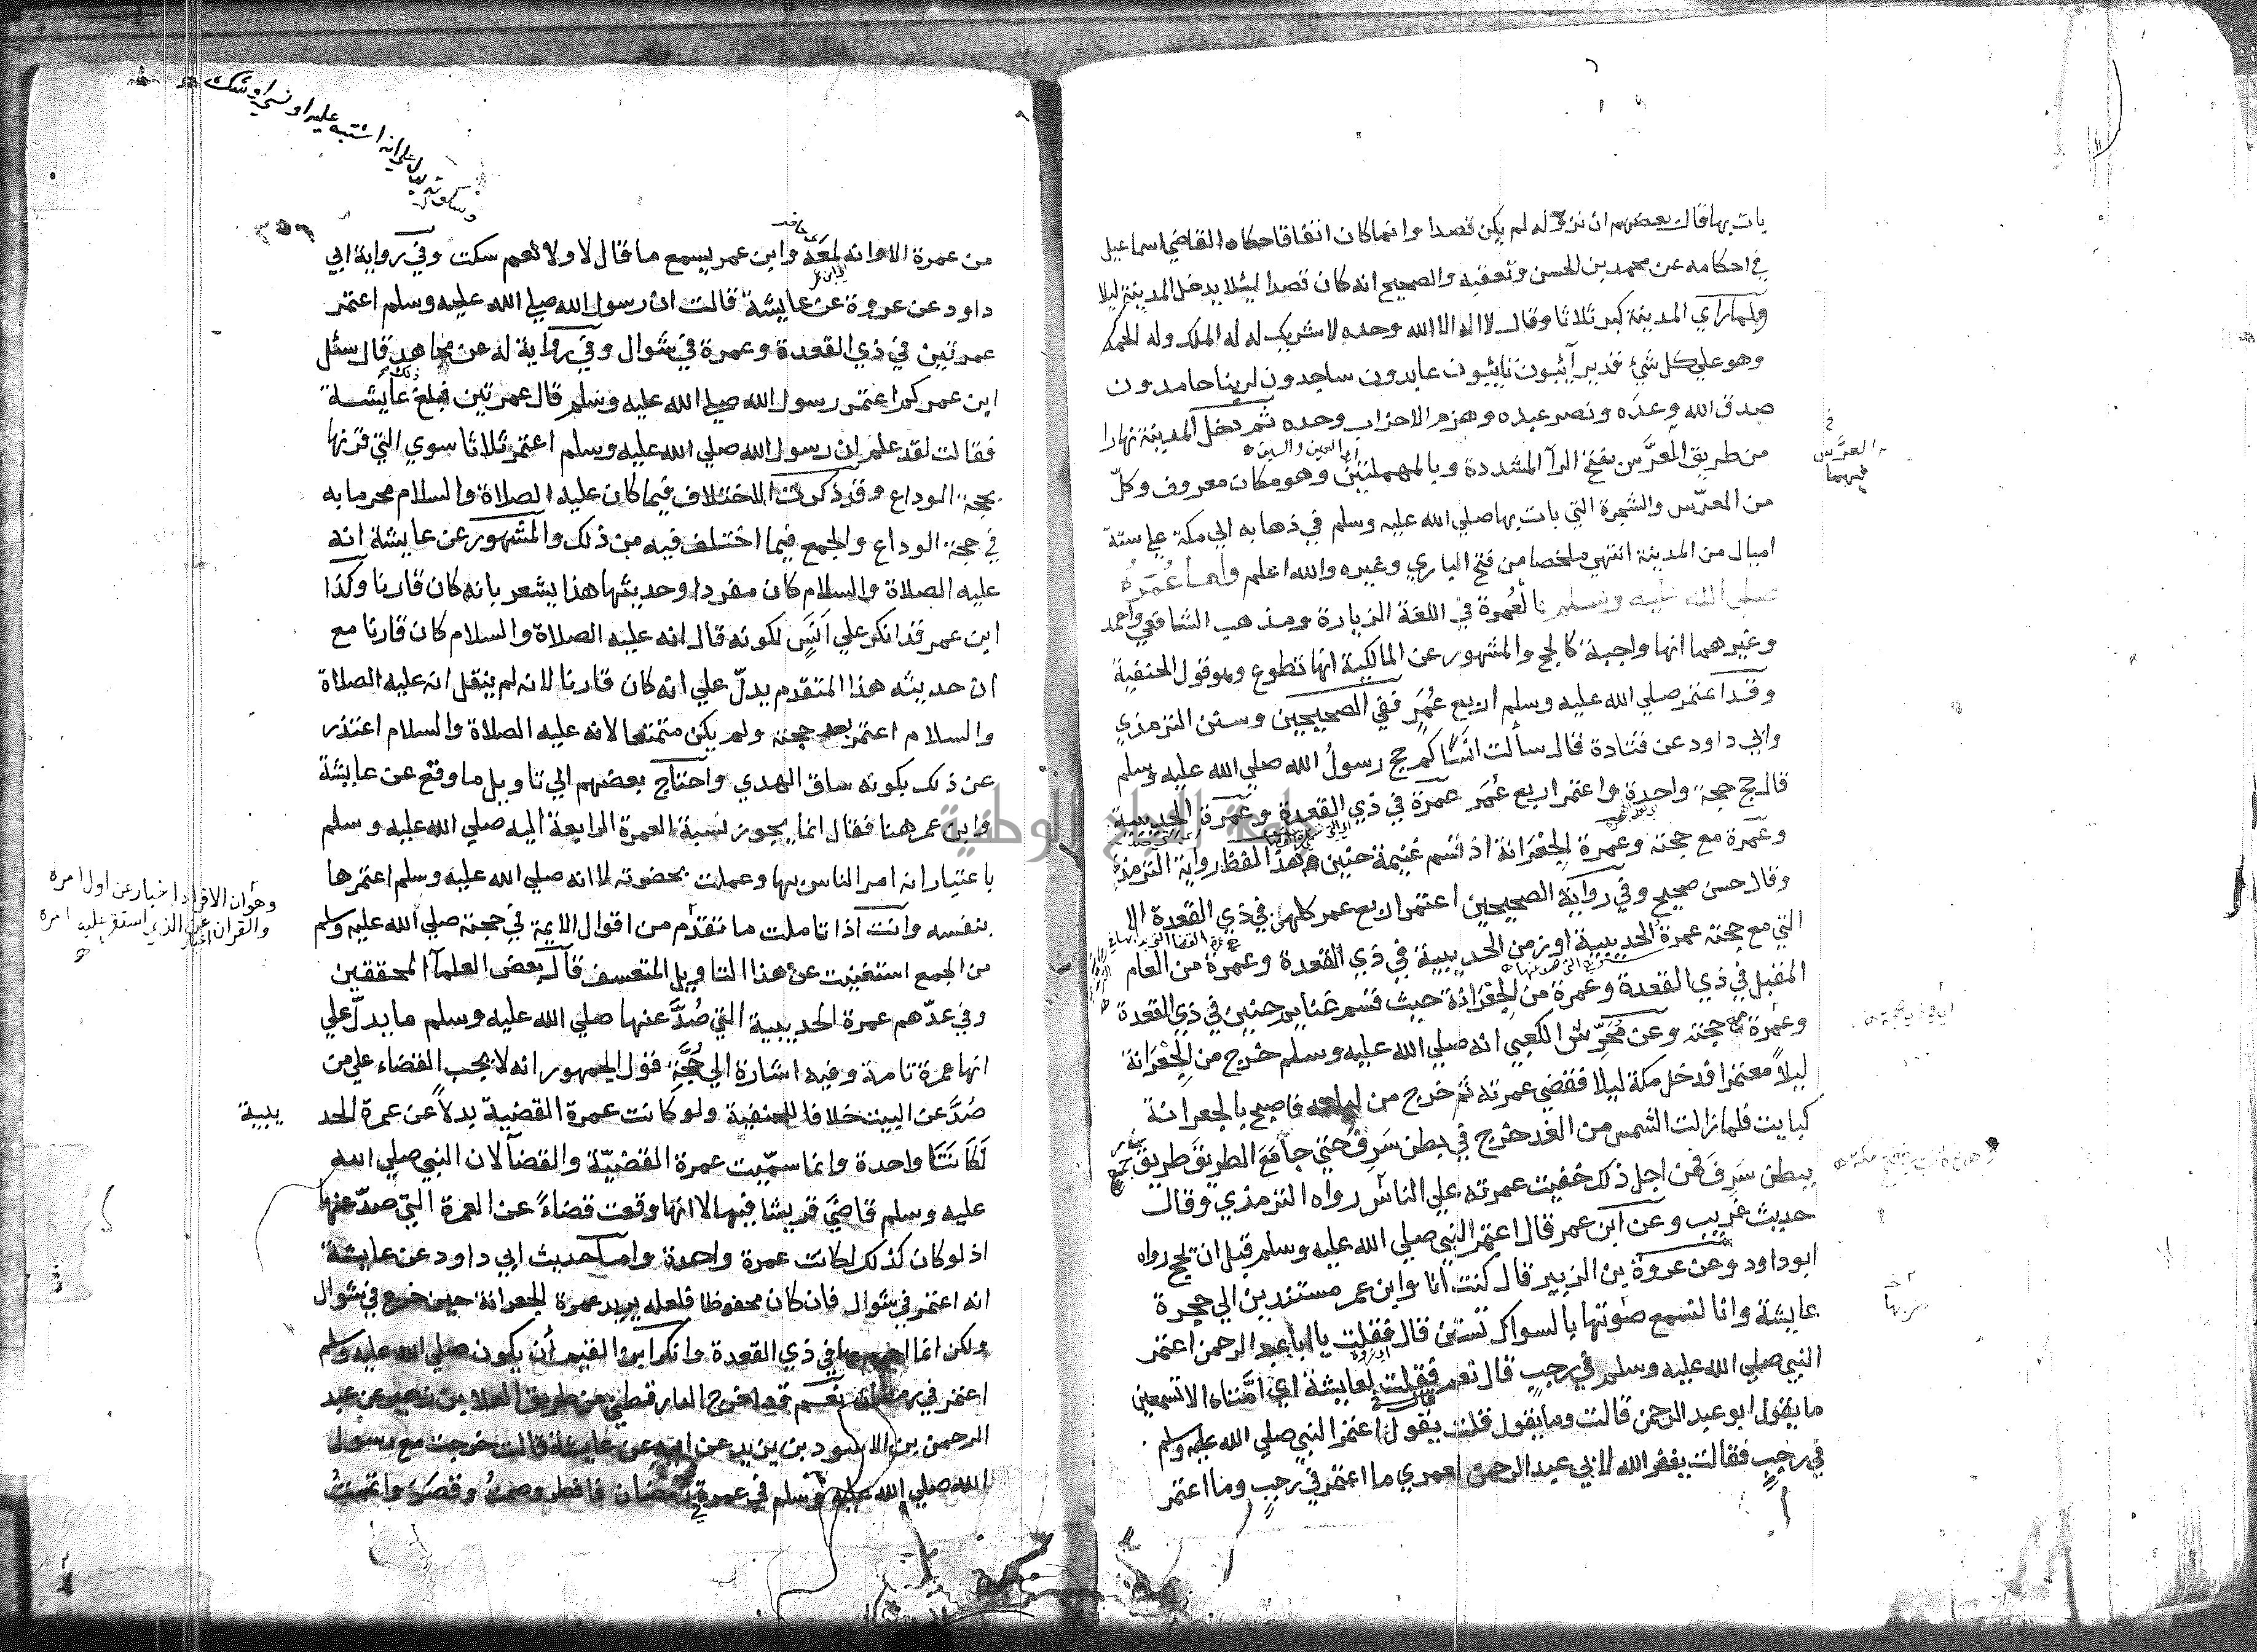 بات بها قال بعضهم ان نزوله لم يكن قصدا وانما كان اتفاقا حكاه القاضي اسماعيل
في احكامه عن محمد بن الحسن وتعقبه والصحيح انه كان قصدا ليئلا يدخل المدينة ليلا
ولما راي المدينة كبر ثلاثا وقال لا اله الا الله وحده لا شريك له له الملك وله الحمد
وهو علي كل شئ قدير آئبون تائبون عابدون ساجدون لربنا حامدون
صدق الله وعده ونصر عبده وهزم الاحزاب وحده ثم دخل المدينة نهارا
من طريق المعرَّس بفتح الرآ المشددة وبالمهملتين وهو مكان معروف وكلّ
اي العين والسين
من المعرّس والشجرة التي بات بها صلي الله عليه وسلم في ذهابه الي مكة علي ستة
اميال من المدينة انتهي ملخصا من فتح الباري وغيره والله اعلم واما عُمَرُهُ
صلي الله عليه وسلم فالعُمرة في اللغة الزيارة ومذهب الشافعي واحمد
وغيرهما انها واجبة كالحج والمشهور عن المالكية انها تطوع وهو قول الحنفية
وقد اعتمر صلي الله عليه وسلم اربع عُمَرٍ ففي الصحيحين وسنن الترمذي
وابي داود عن قتادة قال سألت انسًا كم حج رسولُ الله صلي الله عليه وسلم
قال حج حجة واحدة واعتمر اربع عُمَر عمرة في ذي القعدة وعمرة الحديبية
وعمرة مع حجته وعمرة الجِعْرَانة اذ قسم غنيمة حنين هذا لفظ رواية الترمذي
وقال حسن صحيح وفي رواية الصحيحين اعتمر اربع عمر كلهن في ذي القعدة الا
التي مع حجته عمرة الحديبية او زمن الحديبية في ذي القعدة وعمرة من العام
المقبل في ذي القعدة وعمرة من الجِعْرَانة حيث قسم غنايم حنين في ذي القعدة
وعمرة مع حجته وعن مُحَرِّش الكعبي انه صلي الله عليه وسلم خرج من الجِعْرَانة
ليلاً معتمرا فدخل مكة ليلا فقضي عمرته ثم خرج من ليلته فاصبح بالجعرانة
كبايت فلما زالت الشمس من الغد خرج في بطن سَرِف حتي جامَعَ الطريقَ طريق
ببطن سَرِفَ فمن اجل ذلك خفيت عمرته علي الناس رواه الترمذي وقال
حديث غريب وعن ابن عمر قال اعتمر النبي صلي الله عليه وسلم قبل ان يحج رواه
ابو داود وعن عروة بن الزبير قال كنت انا وابن عمر مستندين الي حجرة
عايشة وانا لنسمع صوتها بالسواك تستن قال فقلت يا ابا عبد الرحمن اعتمر
النبي صلي الله عليه وسلم في رجب قال نعم فقلت لعايشة اي امَّتاه الا تسمعين
ما يقول ابو عبد الرحمن قالت وما يقول قلت يقول اعتمر النبي صلي الله عليه وسلم
في رجبٍ فقالت يغفر الله لابي عبد الرحمن لعمري ما اعتمر في رجبٍ وما اعتمر
من عمرة الا وانه لمعَهُ وابن عمر يسمع ما قال لا ولا نعم سكت وفي رواية ابي
داود عن عروة عن عايشة قالت ان رسول الله صلي الله عليه وسلم اعتمر
عمرتين في ذي القعدة وعمرة في شوال وفي رواية له عن مجاهد قال سئل
ابن عمر كم اعتمر رسول الله صلي الله عليه وسلم قال عمرتين فبلغ ذلك عايشة
فقالت لقد علم ان رسول الله صلي الله عليه وسلم اعتمر ثلاثا سوي التي قرنها
بحجة الوداع وقد ذكرت الاختلاف فيما كان عليه الصلاة والسلام محرما به
في حجة الوداع والجمع فيما اختلف فيه من ذلك والمشهور عن عايشة انه
عليه الصلاة والسلام كان مفردا وحديثها هذا يشعر بانه كان قارنا وكذا
ابن عمر قد انكر علي اَنَسٍ لكونه قال انه عليه الصلاة والسلام كان قارنا مع
ان حديثه هذا المتقدم يدلّ علي انه كان قارنا لانه لم ينقل انه عليه الصلاة
والسلام اعتمر بعد حجته ولم يكن متمتعا لانه عليه الصلاة والسلام اعتذر
عن ذلك بكونه ساق الهدي واحتاج بعضهم الي تاويل ما وقع عن عايشة
وابن عمر هنا فقال انما يجوز نسبة العمرة الرابعة اليه صلي الله عليه وسلم
باعتبار انه امر الناس بها وعملت بحضوته لا انه صلي الله عليه وسلم اعتمرها
بنفسه وانت اذا تاملت ما تقدم من اقوال الايمة في حجته صلي الله عليه وسلم
من الجمع استغنيت عن هذا التاويل المتعسف قال بعض العلمآ المحققين
وفي عدّهم عمرة الحديبية التي صُدَّ عنها صلي الله عليه وسلم ما يدلّ علي
انها عمرة تامة وفيه اشارة الي حُجَّةِ قول الجمهور انه لا يجب القضاء علي من
صُدَّ عن البيت خلافا للحنفية ولو كانت عمرة القضية بدلاً عن عمرة الحد يبية
لكانتا واحدة وانما سمّيت عمرة القضيّة والقضآ لان النبي صلي الله
عليه وسلم قاضَي قريشا فيها لا انها وقعت قضاءً عن العمرة التي صدّ عنها
اذ لو كان كذلك لكانت عمرة واحدة واما حديث ابي داود عن عايشة
انه اعتمر في شوال فان كان محفوظا فلعله يريد عمرة الجعرانة حين خرج في شوال
ولكن انما احرم بها في ذي القعدة وانكر ابن القيم أن يكون صلي الله عليه وسلم
اعتمر في رمضان نعم قد اخرج الدارقطني من طريق العلا بن زهير عن عبد
الرحمن بن الاسود بن يزيد عن ابيه عن عايشة قالت خرجت مع رسول
الله صلي الله عليه وسلم في عمرةٍ في رمضان فافطر وصمتُ وقصَرَ واتممتُ
وهو أن الافراد اخبار عن اول امره
والقران اخبار عن الذي استقر عليه امره
وسكوته يدل علي انه اشتبه عليه او نسي او شك